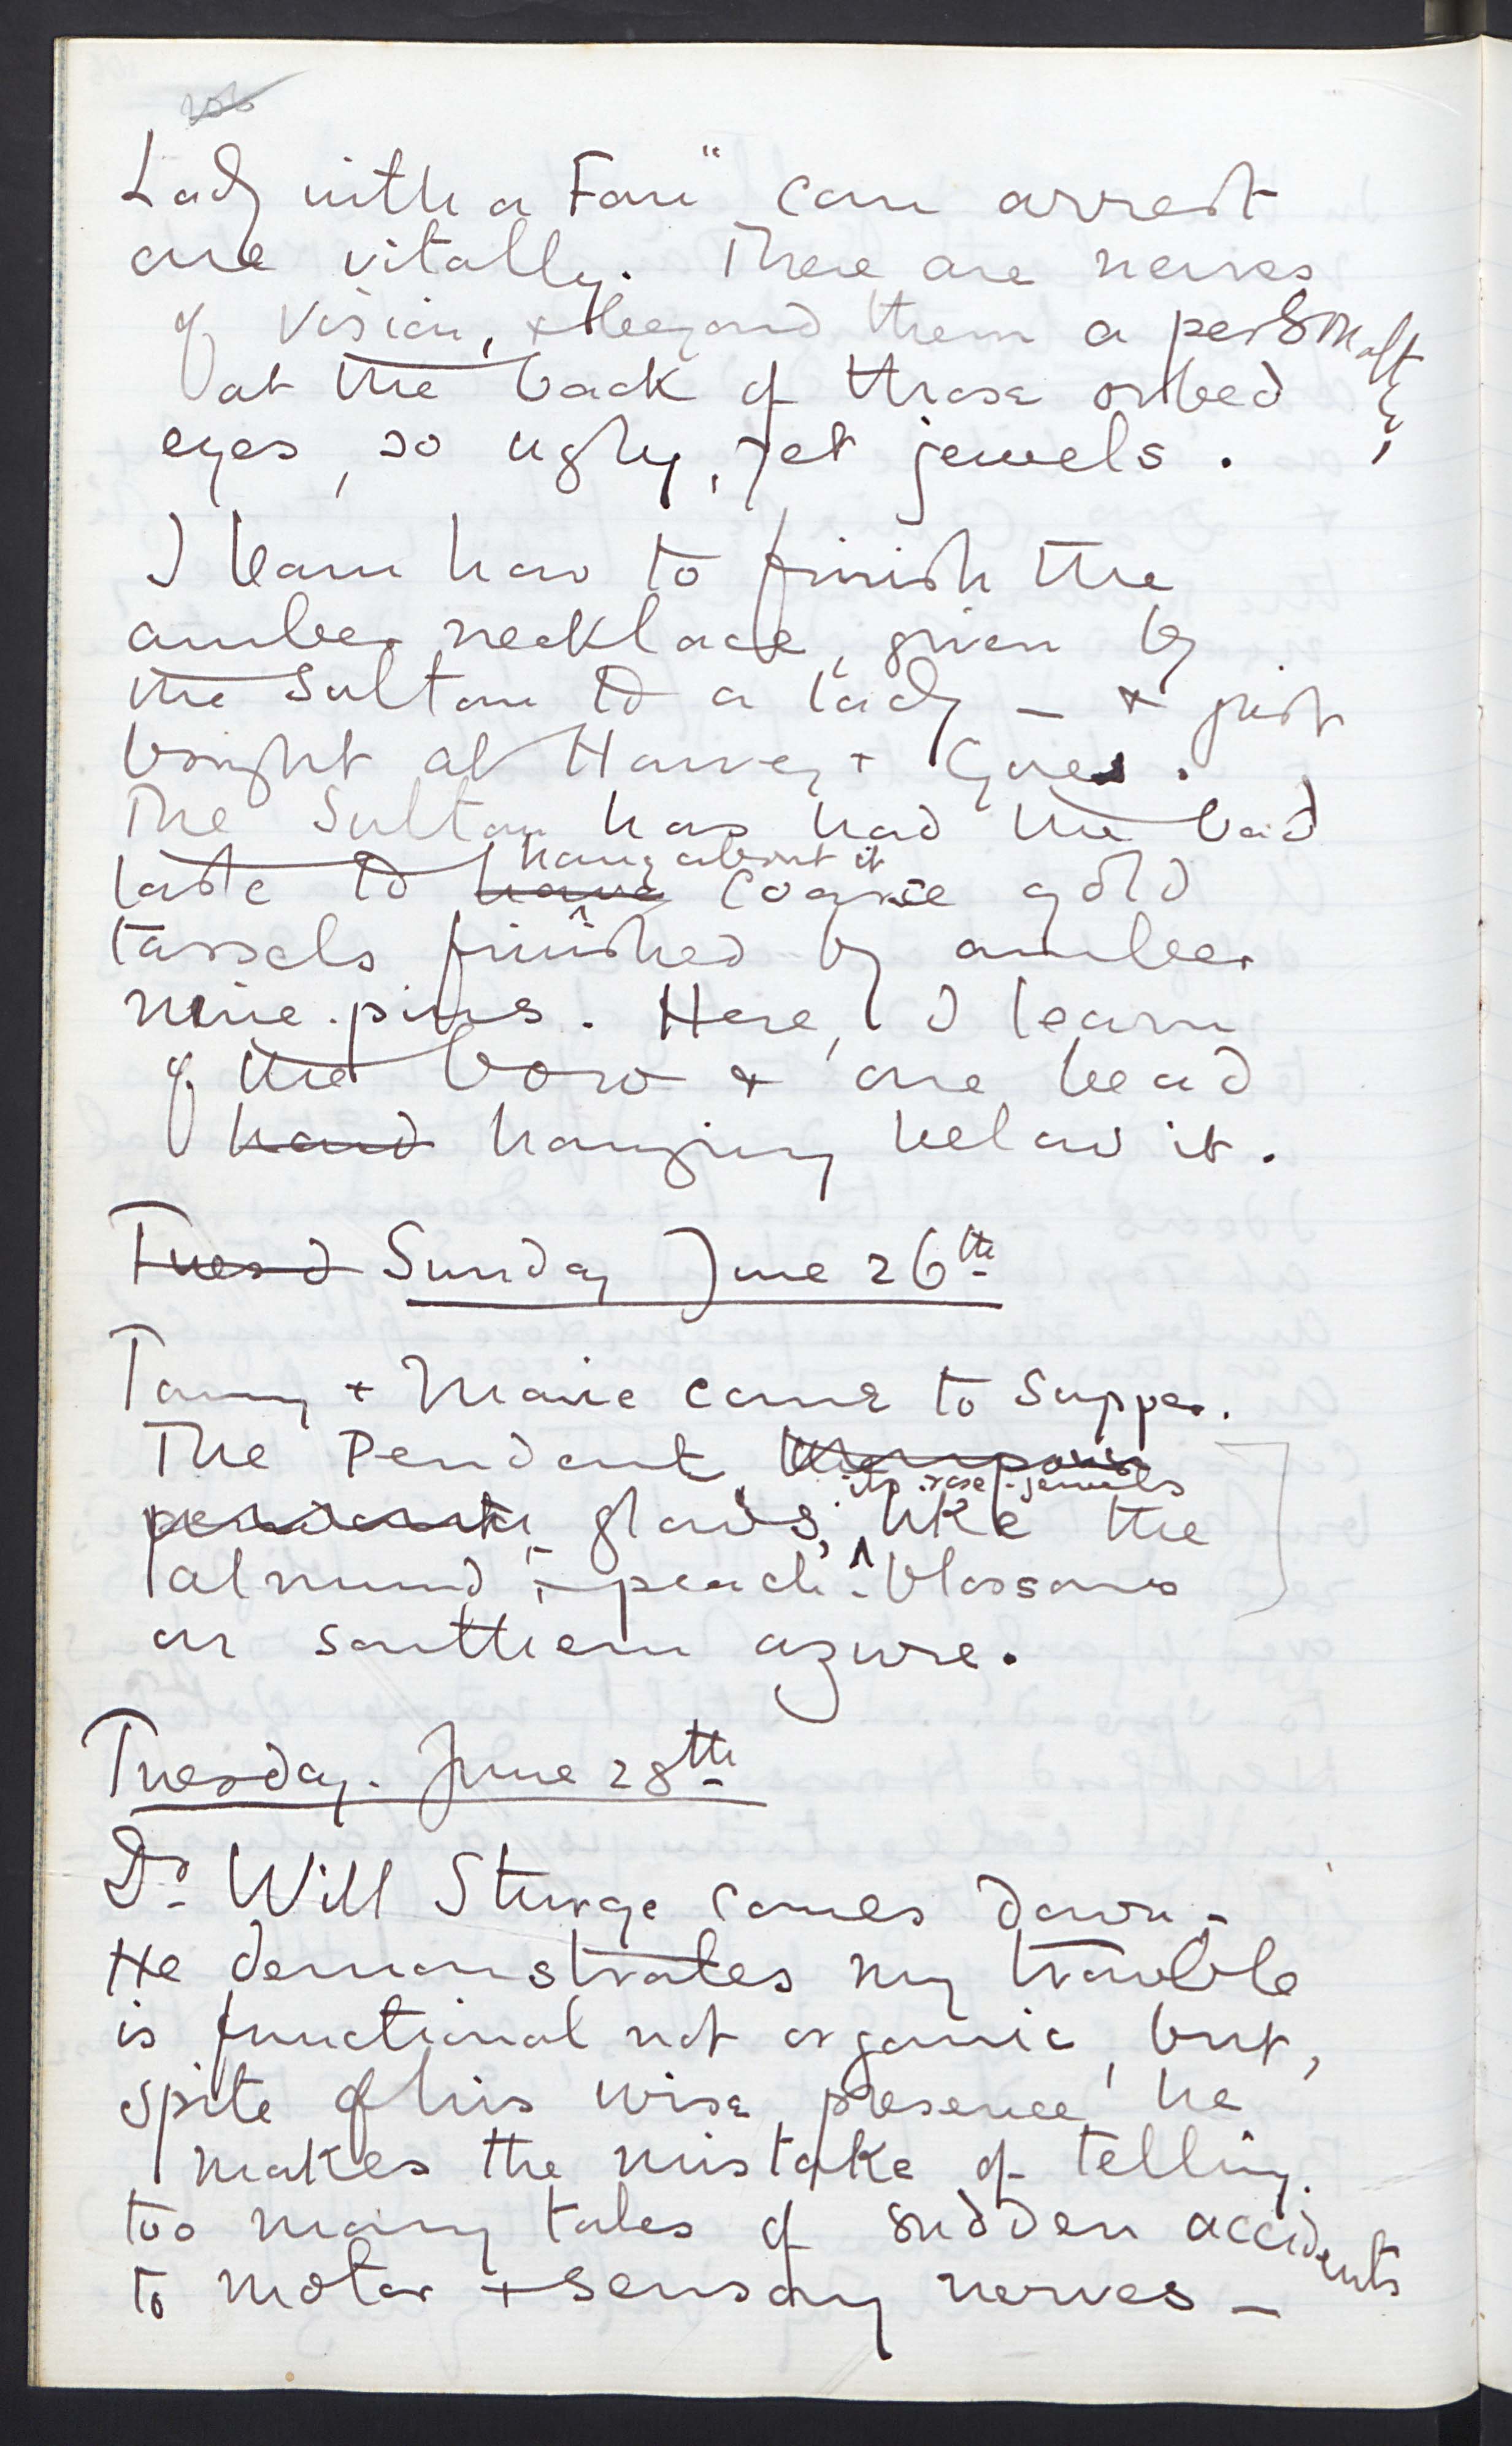 Lady with a Fan" can arrest
one vitally. There are nerves
of Vision, + beyond them a personality
at the back of those orbed
eyes, so ugly, yet jewels.
I learn how to finish the
amber necklace, given by
the Sultan to a lady – + just
bought at Harvey + Gores.
The Sultan has had the bad
taste to have hang about it coarse gold
tassels finished by amber
nine-pins. Here, I learn
of the bow + one bead
hand hanging below it.
Tuesd Sunday June 26th
Tommy + Marie come to Supper.
The Pendant
pendant glows, its rose-jewels like the
almond + peach-blossoms
on southern azure.
Tuesday. June 28th
Dr Will Sturge comes down –
He demonstrates my trouble
is functional not organic, but,
spite of his wise presence he
makes the mistake of telling
too many tales of sudden accidents
to motor + sensory nerves –